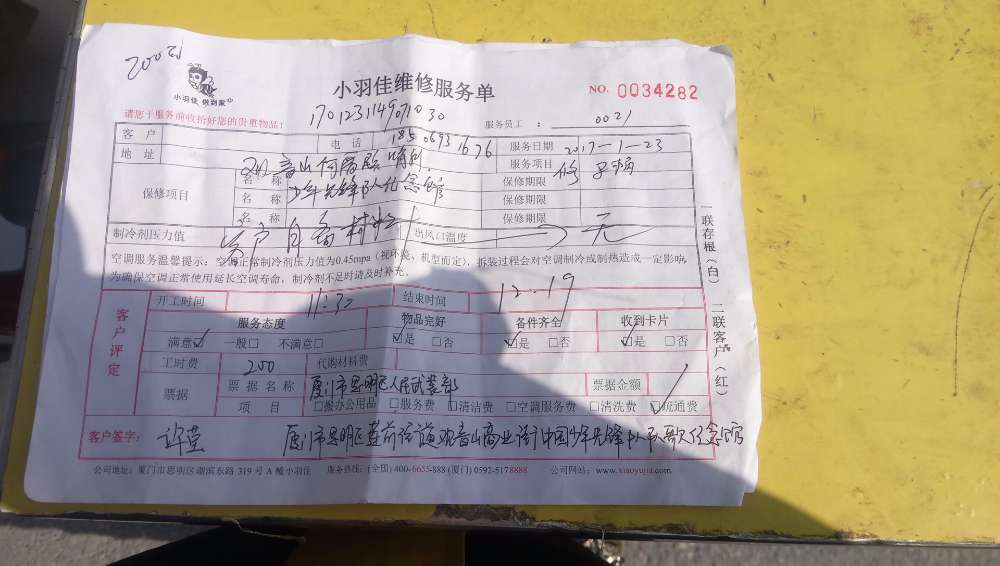 小羽佳维修服务单
NO. 0034282
小羽佳 做到家
请您于服务前收拾好您的贵重物品!
1701231149071030
服务员工 : 0021
客户
电话 18506931676
服务日期 2017-1-23
地址
服务项目 修
保修项目
名称 保修期限
名称 少年先锋队纪念馆 保修期限
名称 保修期限
制冷剂压力值 客户自备材料 出风口温度 无
空调服务温馨提示:空调正常制冷剂压力值为0.45mpa(视环境、机型而定),拆装过程会对空调制冷或制热造成一定影响,
为确保空调正常使用延长空调寿命,制冷剂不足时请及时补充。
客户评定
开工时间 11:30 结束时间 12:19
服务态度 物品完好 备件齐全 收到卡片
满意☑ 一般□ 不满意□ ☑是 □否 ☑是 □否 ☑是 □否
工时费 200 代购材料费
票据 票据名称 厦门市思明区人民武装部 票据金额
项目 □搬办公用品 □服务费 □清洁费 □空调服务费 □清洗费 ☑疏通费
客户签字: 厦门市思明区莲前街道观音山商业街中国少年先锋队队歌纪念馆
公司地址:厦门市思明区湖滨东路 319 号 A 幢小羽佳 服务热线:(全国) 400-6655-888 (厦门) 0592-5178888 公司网站:www.xiaoyujia.com
一联存根(白) 二联客户(红)